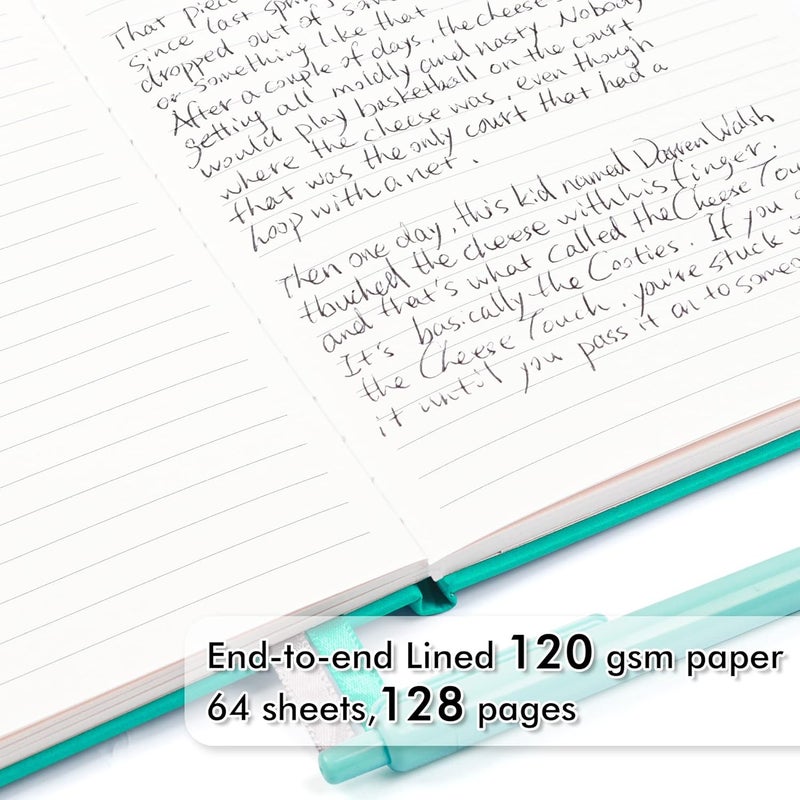 That piece
since last spr
dropped out of
or something like that
After a couple of days, the cheese
getting all moldly and nasty. Nobody
would play basketball on the court
where the cheese was, even though
that was the only court that had a
hoop with a net.
Then one day, this kid named Darren Walsh
touched the cheese with his finger.
and that's what called the Cheese Tou
It's basically the Cooties. If you
the Cheese Touch, you're stuck
it until you pass it on to someo
End-to-end Lined 120 gsm paper
64 sheets,128 pages